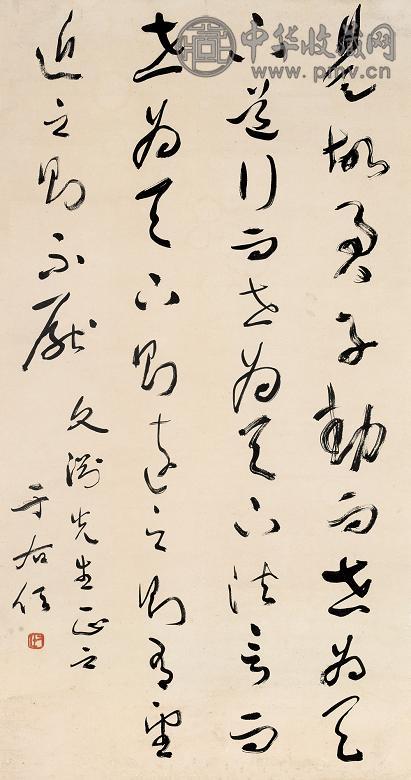 中华收藏网
www.pmv.cn
是故君子動而世為天
下道行而世為天下法言而
世為天下則遠之則有望
近之則不厭
文淵先生正之
于右任